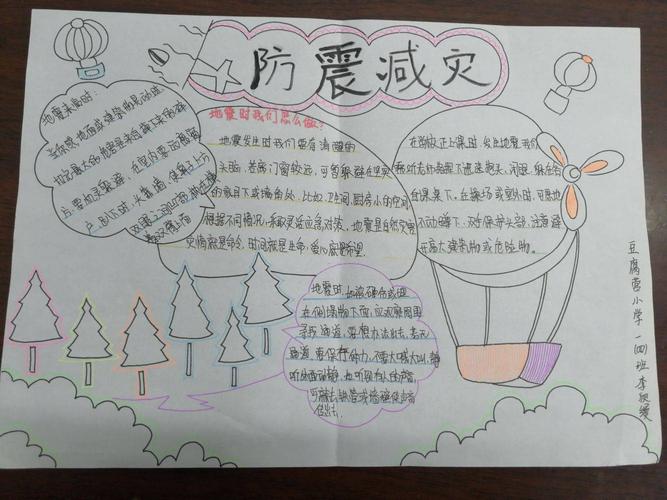 防震减灾
地震来临时：
当你感 地面或建筑物晃动时，
切记最大的危害是来自
片要就近躲避，在室内要
地震时我们怎么做？
地震发生时我们要有清醒的
头脑，若离门窗较远，可暂躲避在坚实
的家具下或墙角处，比如，卫间，厨房小的空间
根据不同情况，采取灵活应急对策。地震是自然灾害
灾情就是命令，时间就是生命，爱心就是希望。
在学校正上课时，发生地震我们
听老师指挥下迅速抱头、闭眼、躲在各
自课桌下。在操场或室外时，可原地
不动蹲下，双手保护头部，注意避
开高大建筑物或危险物。
地震时，如被砸伤或埋
在倒塌物下面，应观察周围
寻找通道，要想办法出去，若无
通道，要保存体力，不要大喊大叫，静
听外面动静，也听见有人的声音，
可敲击铁管或墙壁使声音
传出去。
豆腐营小学一(四)班 李